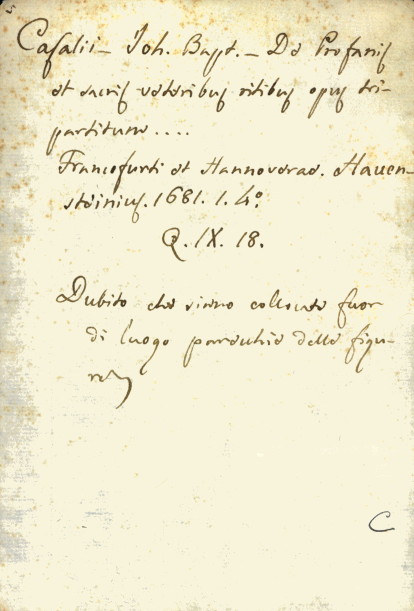 5
Casalii - Joh. Bapt. - De Profanis
et sacris veteribus ritibus opus tri-
partitum....
Francofurti et Hannoverae. Hauen-
steinius. 1681. 1. 4°.
Q. IX. 18.
Dubito che sieno collocate fuor
di luogo parecchie delle figu-
re
C